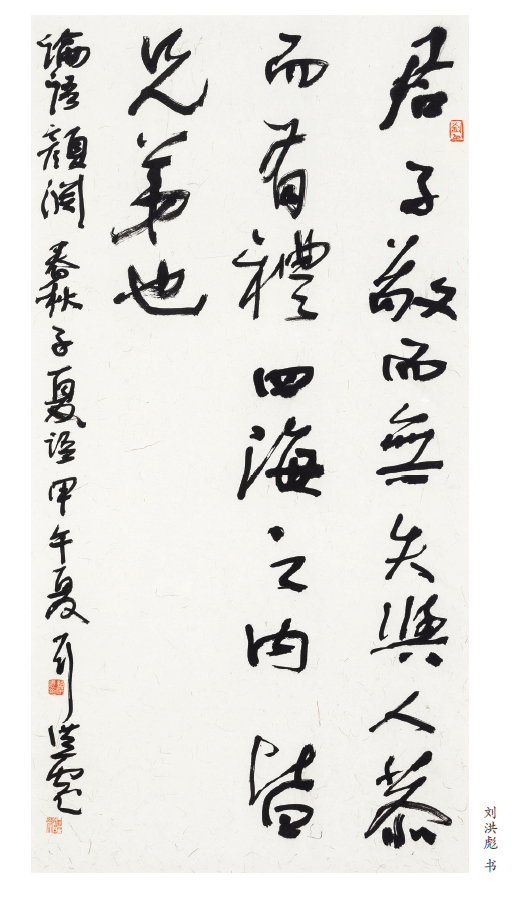 君子敬而無失與人恭
而有禮四海之内皆
兄弟也
論語顏淵春秋子夏語甲午夏刘洪彪
刘洪彪 书